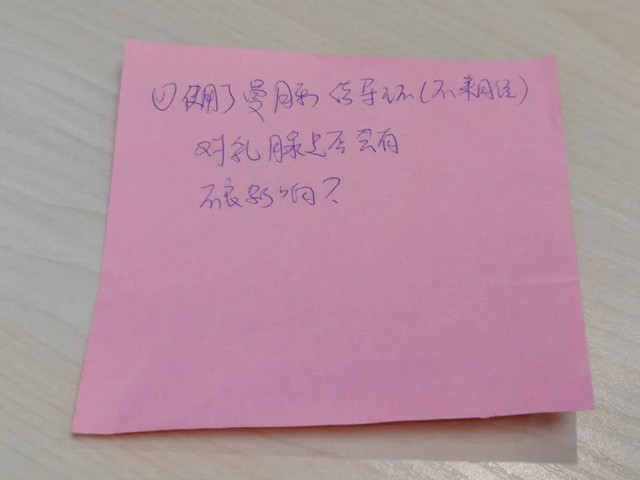 ①使用了曼月乐 宫导环(不来月经)
对乳腺是否会有
不良影响？